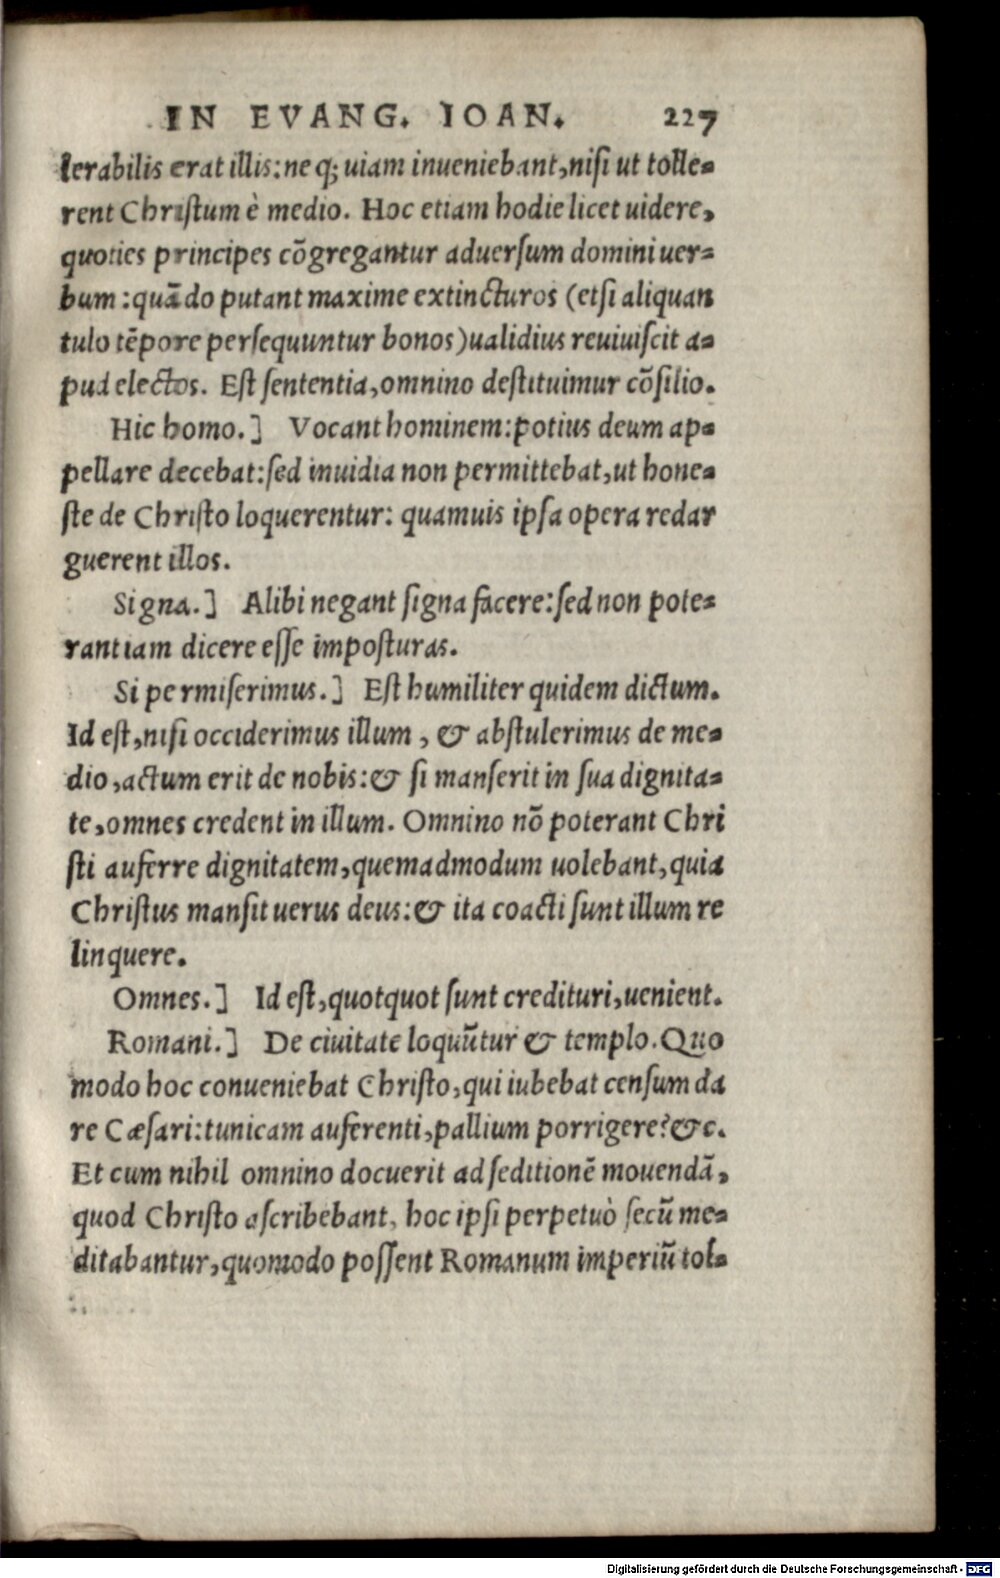 IN EVANG. IOAN. 227
lerabilis erat illis: neq; uiam inueniebant, nisi ut tolle-
rent Christum è medio. Hoc etiam hodie licet uidere,
quoties principes cōgregantur aduersum domini uer-
bum: quādo putant maxime extincturos (etsi aliquan
tulo tēpore persequuntur bonos) ualidius reuiuiscit a-
pud electos. Est sententia, omnino destituimur cōsilio.
Hic homo.] Vocant hominem: potius deum ap-
pellare decebat: sed inuidia non permittebat, ut hone-
ste de Christo loquerentur: quamuis ipsa opera redar
guerent illos.
Signa.] Alibi negant signa facere: sed non pote-
rant iam dicere esse imposturas.
Si permiserimus.] Est humiliter quidem dictum.
Id est, nisi occiderimus illum, & abstulerimus de me-
dio, actum erit de nobis: & si manserit in sua dignita-
te, omnes credent in illum. Omnino nō poterant Chri
sti auferre dignitatem, quemadmodum uolebant, quia
Christus mansit uerus deus: & ita coacti sunt illum re
linquere.
Omnes.] Id est, quotquot sunt credituri, uenient.
Romani.] De ciuitate loquūtur & templo. Quo
modo hoc conueniebat Christo, qui iubebat censum da
re Cæsari: tunicam auferenti, pallium porrigere? &c.
Et cum nihil omnino docuerit ad seditionē mouendā,
quod Christo ascribebant, hoc ipsi perpetuò secū me-
ditabantur, quomodo possent Romanum imperiū tol-
Digitalisierung gefördert durch die Deutsche Forschungsgemeinschaft - DFG